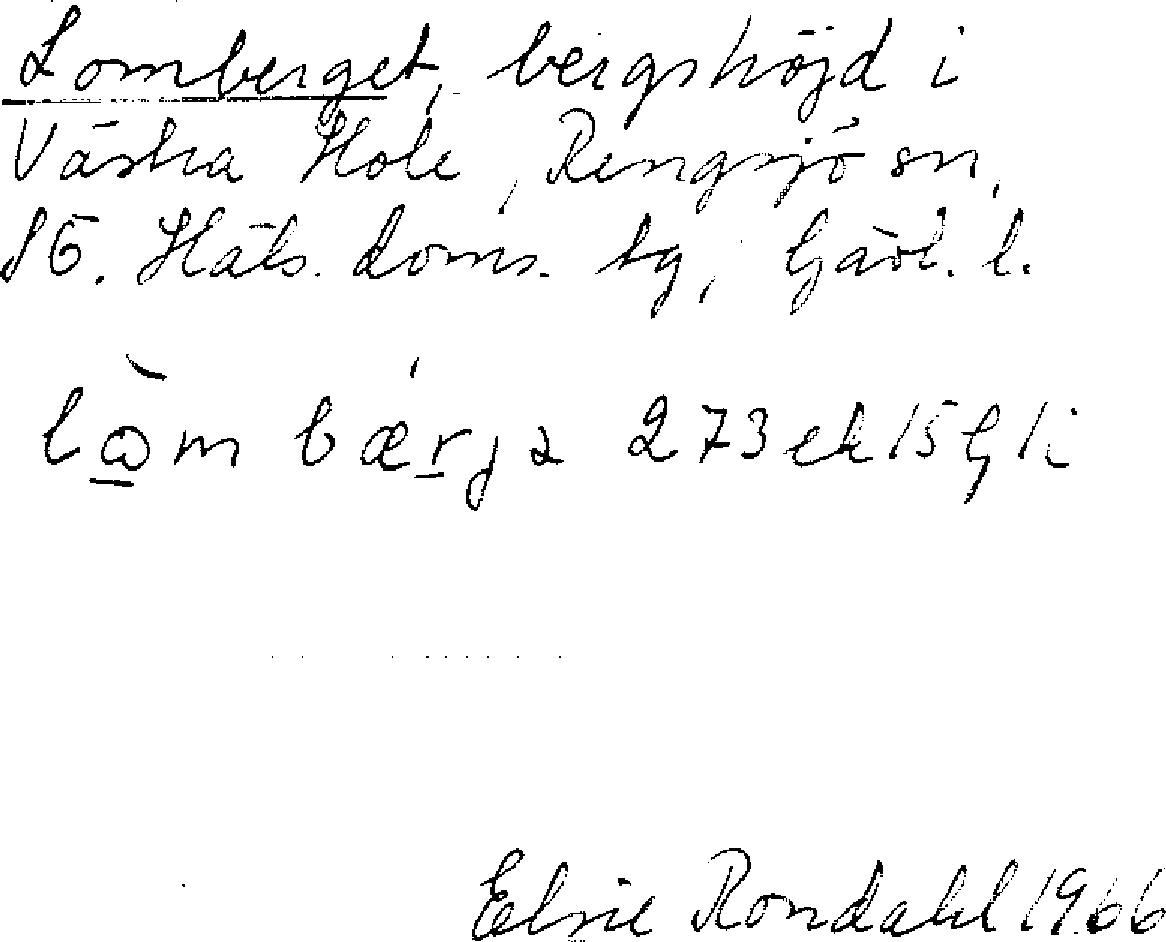 Lomberget, bergshöjd i
Västra Hole, Rengsjö sn,
SÖ. Häls. doms. tg, Gävl. l.
lå̀m bǽrjə 273 ek 15 G 1i
Elsie Rondahl 1966